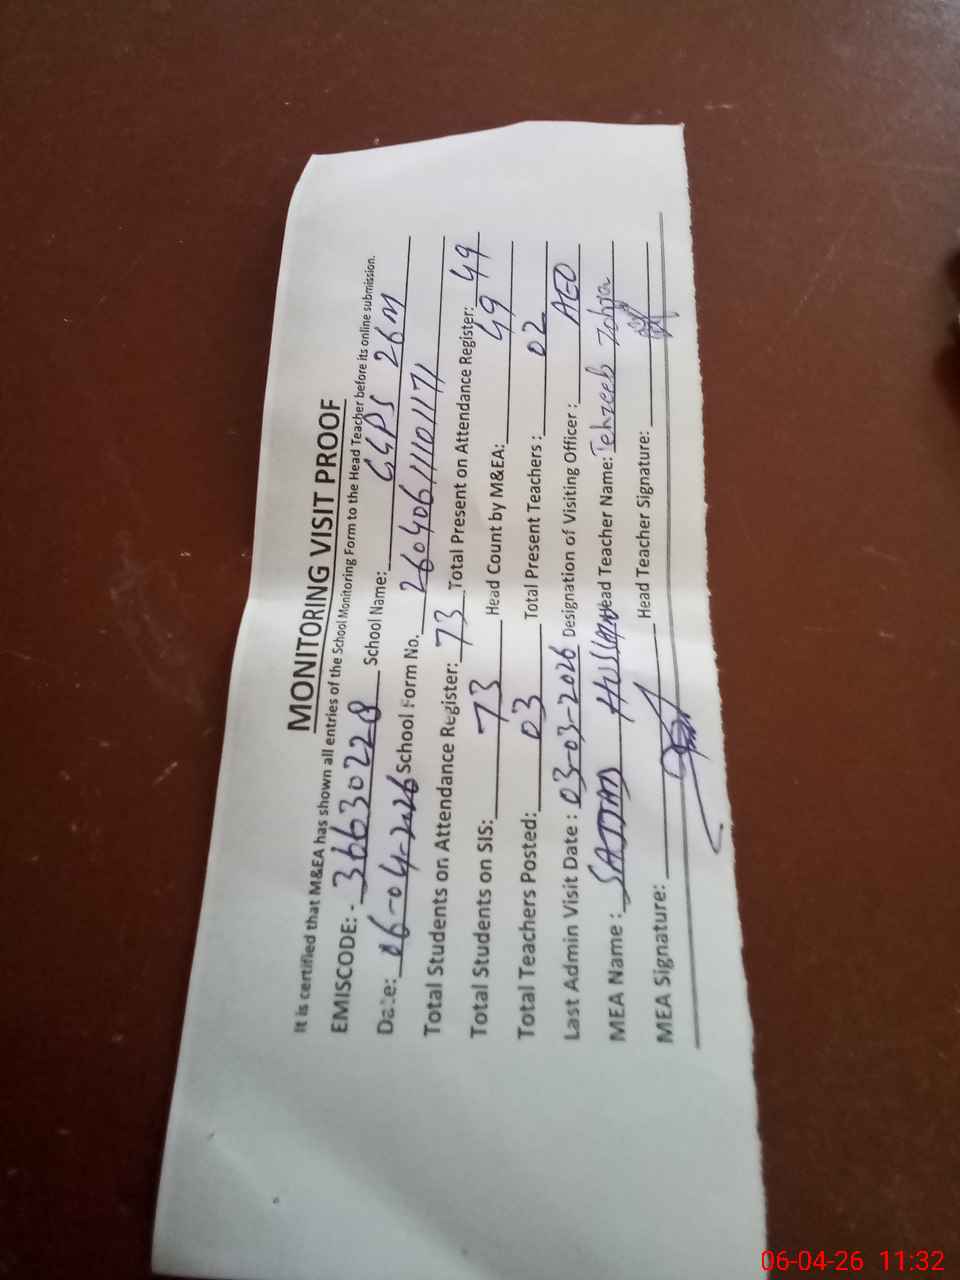 MONITORING VISIT PROOF
It is certified that M&EA has shown all entries of the School Monitoring Form to the Head Teacher before its online submission.
EMISCODE: - 36630228 School Name: GGPS 26M
Date: 06-04-2026 School Form No. 260406111101171
Total Students on Attendance Register: 73 Total Present on Attendance Register: 49
Total Students on SIS: 73 Head Count by M&EA: 49
Total Teachers Posted: 03 Total Present Teachers : 02
Last Admin Visit Date : 03-03-2026 Designation of Visiting Officer : AEO
MEA Name : SAJJAD HUSSAIN Head Teacher Name: Tehzeeb Zohra
MEA Signature: Head Teacher Signature:
06-04-26 11:32